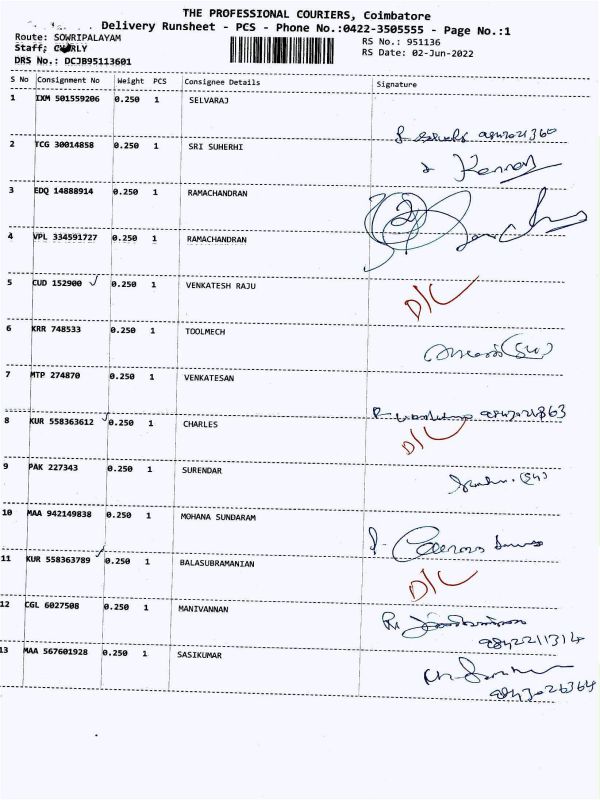 THE PROFESSIONAL COURIERS, Coimbatore
Delivery Runsheet - PCS - Phone No.:0422-3505555 - Page No.:1
Route: SOWRIPALAYAM RS No.: 951136
Staff: RS Date: 02-Jun-2022
DRS No.: DCJB95113601
S No Consignment No Weight PCS Consignee Details Signature
1 IXM 501559206 0.250 1 SELVARAJ
2 TCG 30014858 0.250 1 SRI SUHERHI
3 EDQ 14888914 0.250 1 RAMACHANDRAN
4 VPL 334591727 0.250 1 RAMACHANDRAN
5 CUD 152900 0.250 1 VENKATESH RAJU D/C
6 KRR 748533 0.250 1 TOOLMECH
7 MTP 274870 0.250 1 VENKATESAN
8 KUR 558363612 0.250 1 CHARLES D/C
9 PAK 227343 0.250 1 SURENDAR
10 MAA 942149838 0.250 1 MOHANA SUNDARAM
11 KUR 558363789 0.250 1 BALASUBRAMANIAN D/C
12 CGL 6027508 0.250 1 MANIVANNAN
9842211314
13 MAA 567601928 0.250 1 SASIKUMAR